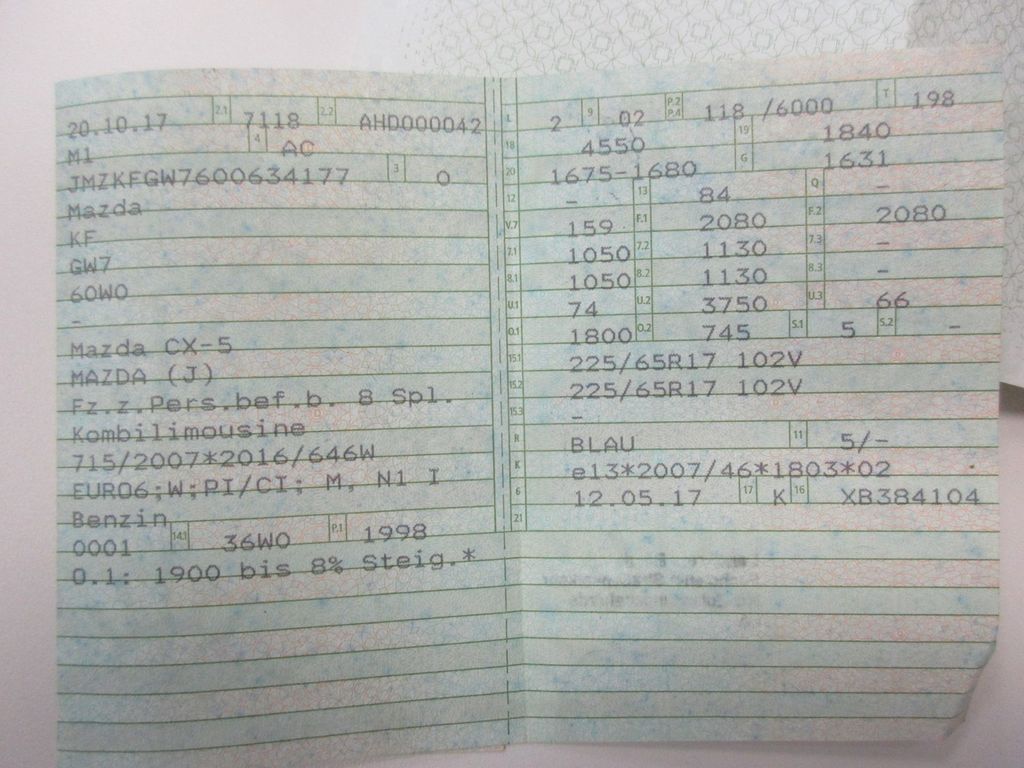 20.10.17 2.1 7118 2.2 AHD000042
M1 4 AC
JMZKFGW7600634177 3 0
Mazda
KF
GW7
60W0
-
Mazda CX-5
MAZDA (J)
Fz.z.Pers.bef.b. 8 Spl.
Kombilimousine
715/2007*2016/646W
EURO6;W;PI/CI; M, N1 I
Benzin
0001 14.1 36W0 P.1 1998
O.1: 1900 bis 8% Steig.*
L 2 9 02 P.2 P.4 118 /6000 T 198
18 4550 19 1840
20 1675-1680 G 1631
12 - 13 84 Q -
V.7 159 F.1 2080 F.2 2080
7.1 1050 7.2 1130 7.3 -
8.1 1050 8.2 1130 8.3 -
U.1 74 U.2 3750 U.3 66
O.1 1800 O.2 745 S.1 5 S.2 -
15.1 225/65R17 102V
15.2 225/65R17 102V
15.3 -
R BLAU 11 5/-
K e13*2007/46*1803*02
6 12.05.17 17 K 16 XB384104
21